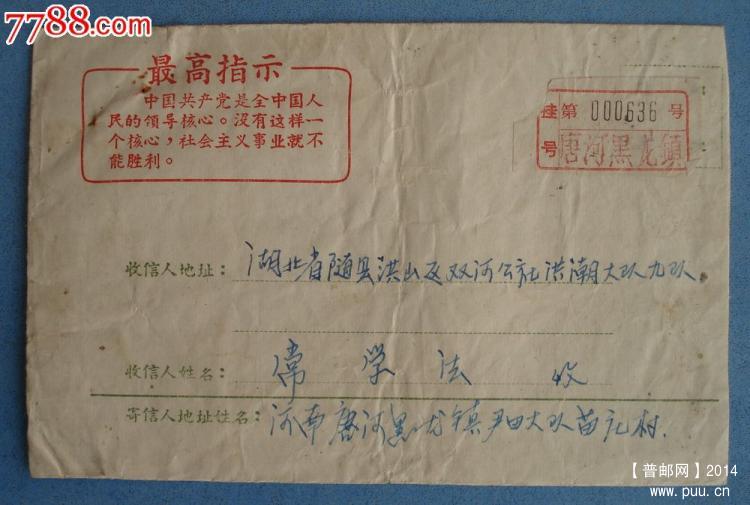 7788.com
最高指示
中国共产党是全中国人
民的领导核心。没有这样一
个核心，社会主义事业就不
能胜利。
挂第 000636 号
号 唐河黑龙镇
收信人地址：湖北省随县洪山区双河公社洪潮大队九队
收信人姓名：常学法 收
寄信人地址姓名：河南唐河黑龙镇尹田大队苗元村.
【普邮网】2014
www.puu.cn